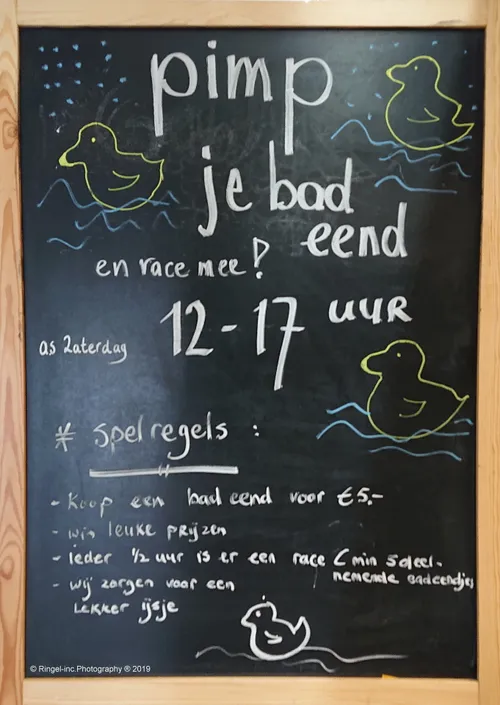 pimp
je bad
eend
en race mee!
12-17 uur
as zaterdag
* spelregels :
- koop een bad eend voor €5,-
- win leuke prijzen
- ieder 1/2 uur is er een race (min 5 deel-
nemende badeendjes
- wij zorgen voor een
lekker ijsje
© Ringel-inc.Photography ® 2019